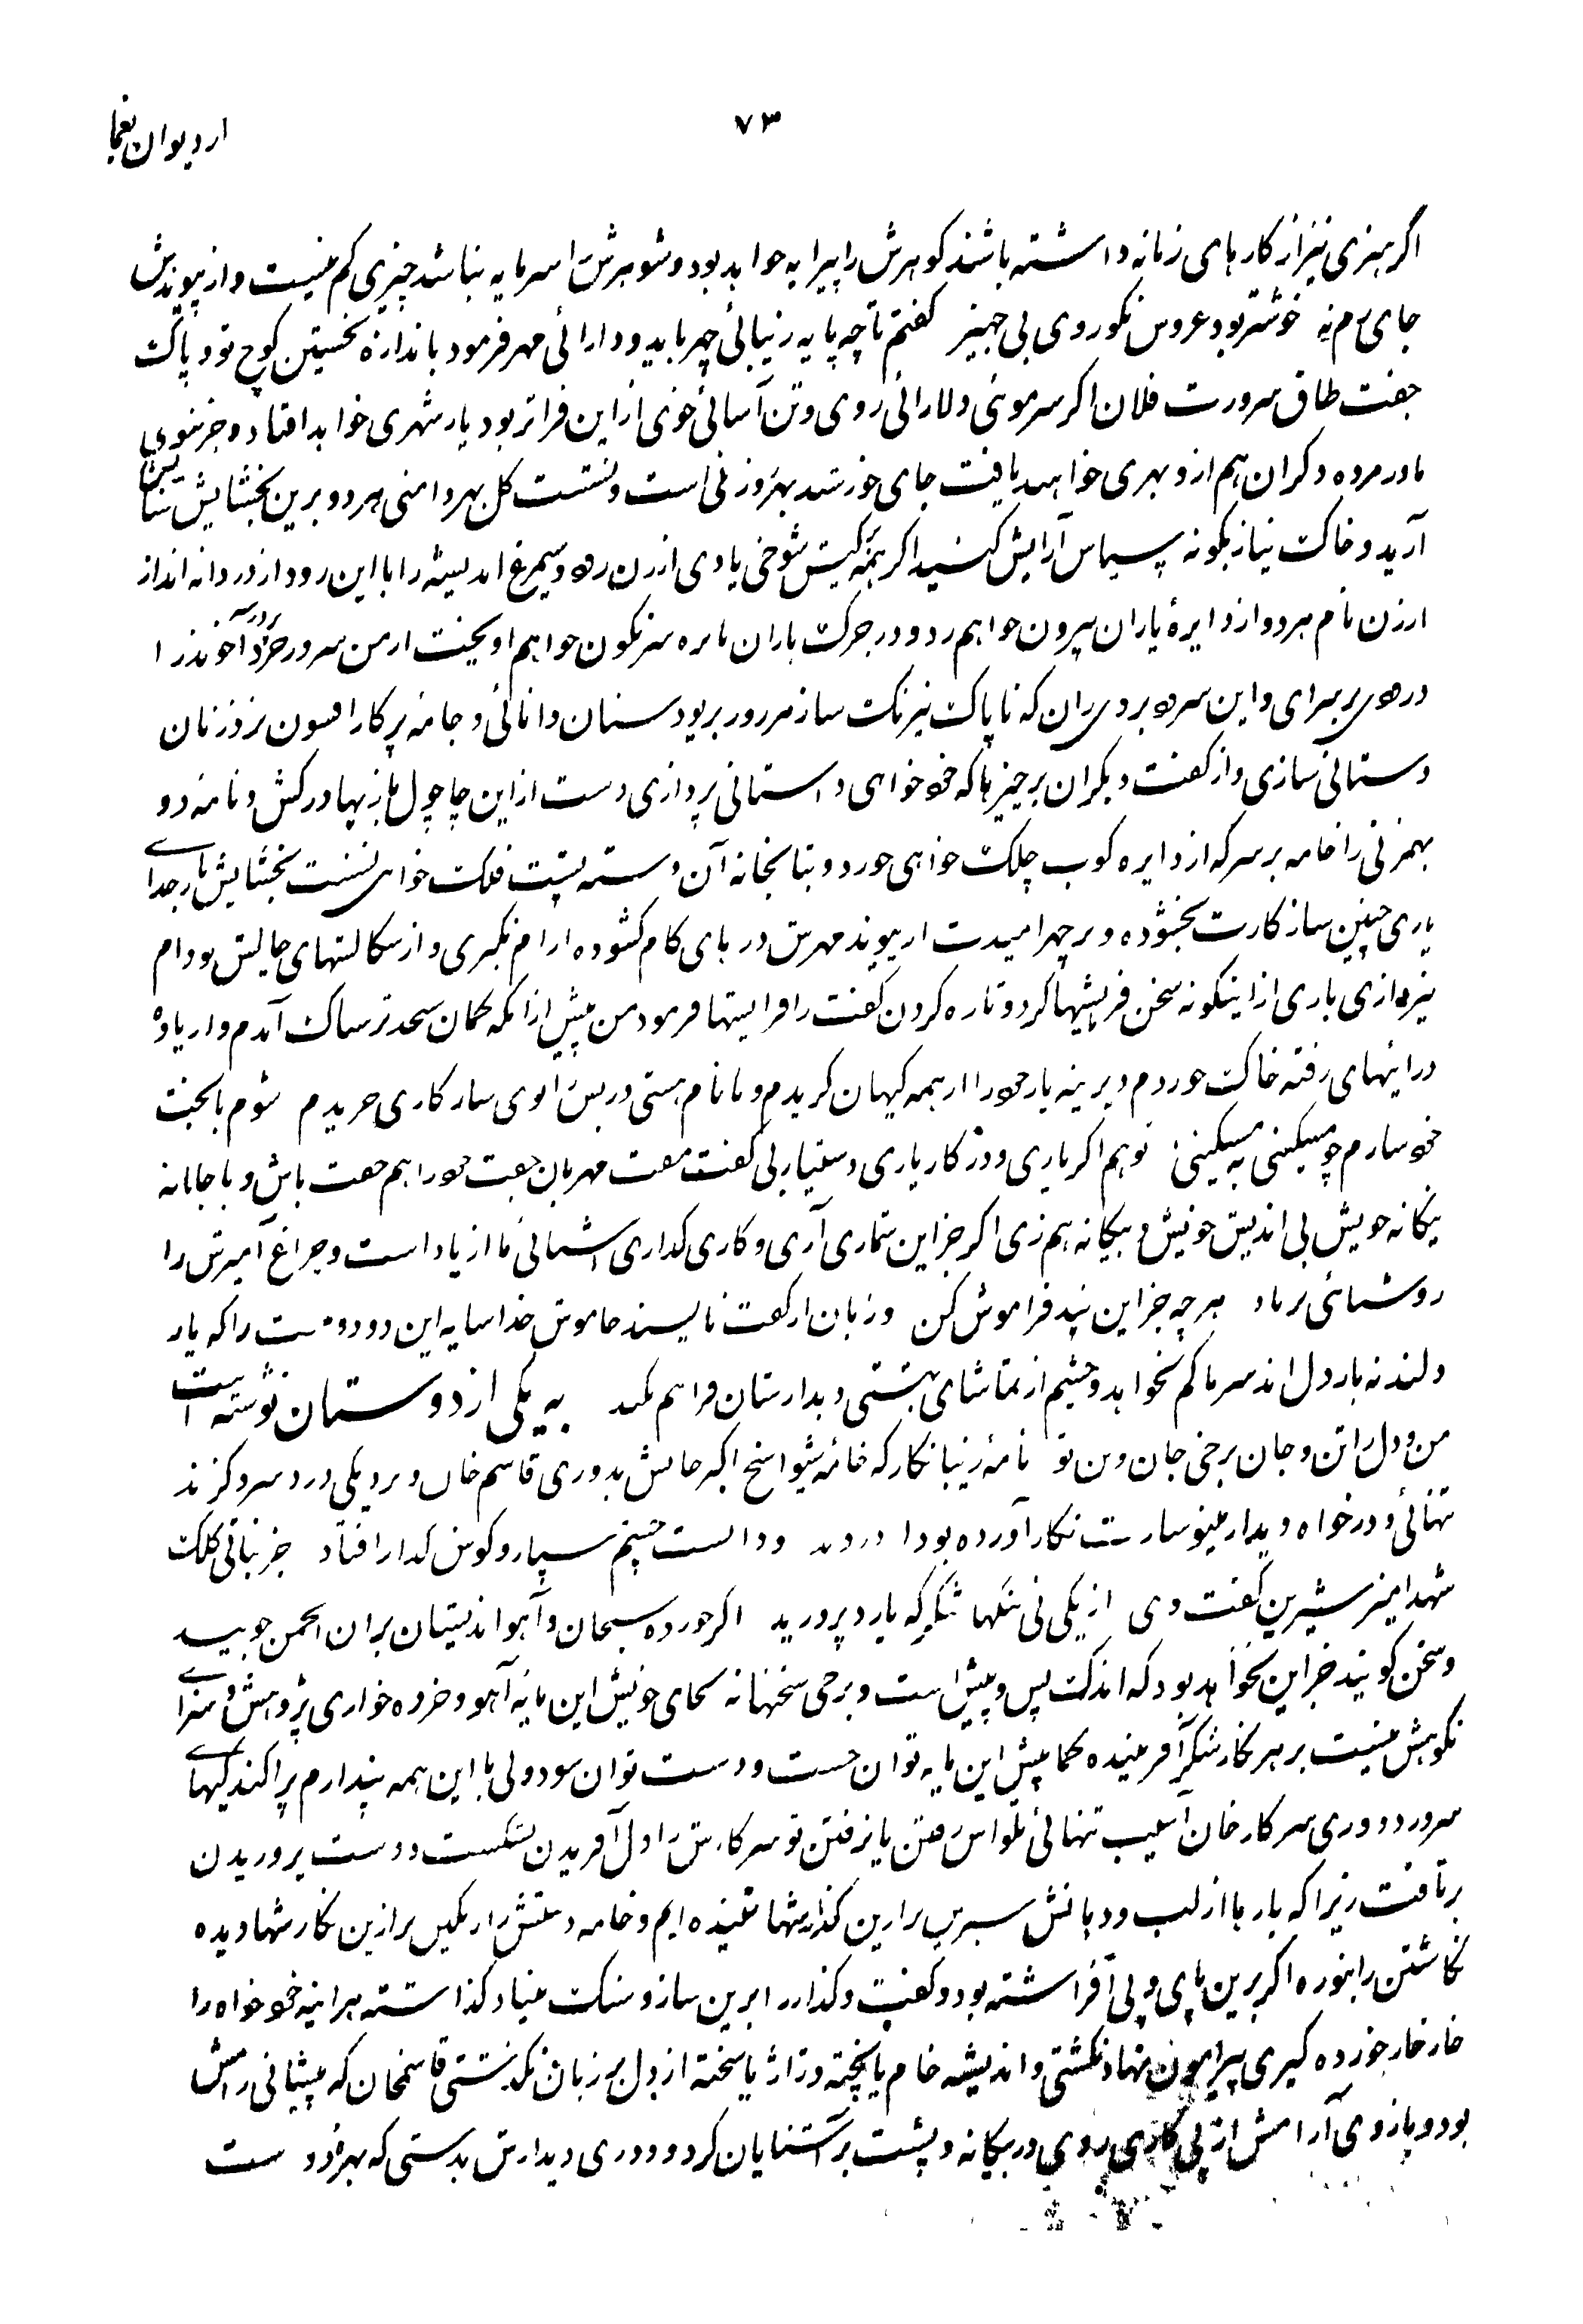 از دیوان یغما
۷۳
اگر هنری نیز از کارهای زنانه داشته باشند گوهرش را پیرایه خواهد بود و شوهرش را سرمایه نباشد چیزی کم نیست و از پیوندش
جای رم نه خوشتر بود عروس نکوروی بی جهیز گفتم تا چه پایه زیبائی چهر باید و دارائی مهر فرمود باندازه نخستین کوچ تو و پاک
جفت طاق سرورت فلان اگر سر موئی دلارائی روی و تن آسائی خوی از این فراتر بود یار شهری خواهد افتاد و جز شوی
مادر مرده دگران هم ازو بهری خواهند یافت جای خورشید بهروزنی است و نشست گل بهر دامنی هر دو برین بخشایش ستایش
آرید و خاک نیاز بگونه سپاس آرایش کنید اگر کیش شوخی یادی از زن رود و سیمرغ اندیشه را با این رود از در دانه انداز
ارزن نام هر دو از دایره یاران بیرون خواهم زد و در جرگ یاران سرنگون خواهم آویخت از من سرور خرد آخوند را
درودی بر سرای و این سرود بر وی ران که ناپاک نیرنگ ساز مزور بر بود سنان دانائی و جامه پرکار افسون بر زنان
دستانی سازی و از گفت دیگران بر چیزها که خود خواهی داستانی پردازی دست از این چاچول بازیها درکش و نامه دو
بهمزنی را خامه بر سر که از دایره کوب چلک خواهی خورد و بتابخانه آن دسته پشت فلک خواهی نشست بخشایش بار خدای
یاری چنین سازگارت بخشوده و بر چهر امیدت از پیوند مهرش درهای کام گشوده آرام نگیری و از سگالشهای جالیش بودام
نپردازی باری از اینگونه سخن فریشیها کرد و تازه کردن گفت را فرایشها فرمود من پیش از آنکه گمان سخت ترسناک آمدم و از یاد
درائیهای رفته خاک خوردم دیرینه یار خود را از همه کیهان گزیدم و با نام هستی دربست آنوی سازگاری خریدم شوم با بخت
خود سازم چو مسکینی به مسکینی؛ تو هم اگر یاری و در کار یاری دستیار بی گفت مفت مهربان جفت خود را هم جفت باش و با جانانه
یگانه خویش بی اندیش خویش و بیگانه هم زی اگر جز این شماری آری و کاری گذاری آشنائی ما از یاد است و چراغ آمیزش را
روشنائی بر باد هر چه جز این پند فراموش کن و زبان از گفت ناپسند خاموش خدا سایه این دو دوست را که یار
دلند نه بار دل اند سر ما کم نخواهد و چشم از تماشای بهشتی دیدارستان فراهم مکند به یکی از دوستان نوشته است
من و دل را تن و جان برخی جان و تن تو نامه زیبا نگار که خامه شیوا سنج اکبر خانیش بدوری قاسم خان و بردیکی درد سر و گزند
تنهائی و درخواه دیدار مینو سارت نگار آورده بود از در دید و دانست چشم سپار و گوش گذار افتاد جز بنانی کلک
شهد آمیز شیرین گفت وی از یکی نی تنگها شکر که یارد پرورید اگر خورده سنجان و آهو اندیشان بر آن انجمن جویند
و سخن گویند جز این نخواهد بود که اندک پس و پیش است و برخی سخنها نه بجای خویش این مایه آهو و خرده خواری پژوهش و سزای
نکوهش نیست بر هر نگارشگر آفریننده کما بیش این مایه توان جست و دست توان سود ولی با این همه پندارم پراکندگیهای
سرور و دوری سرکار خان آسیب تنهائی تلواس رفتن یا نرفتن تو سرکارش را دل آفریدن شکست دوست پروریدن
برتافت زیرا که بارها از لب و دهانش سرین برارین گذارشها شنیده ایم و خامه دستش را رنگین برازین نگارشها دیده
نگاشتن را بنوره اگر برین پای و پی افراشته بود و گفت و گذار را برین ساز و سنگ بنیاد گذاشته هر آینه خود خواه را
خار خار خورده گیری پیرامون نهاد نگشتی و اندیشه خام یا پخته و ژاژ یا سخته از دل بر زبان نگذشتی قاسمخان که پیشانی رامش
بود و بازوی آرامش از پی کاری روی در بیگانه و پشت بر آشنایان کرد و دوری دیدارش بدستی که بهر دوست